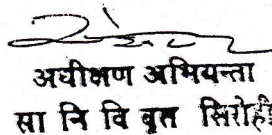 अधीक्षण अभियन्ता
सा नि वि वृत सिरोही